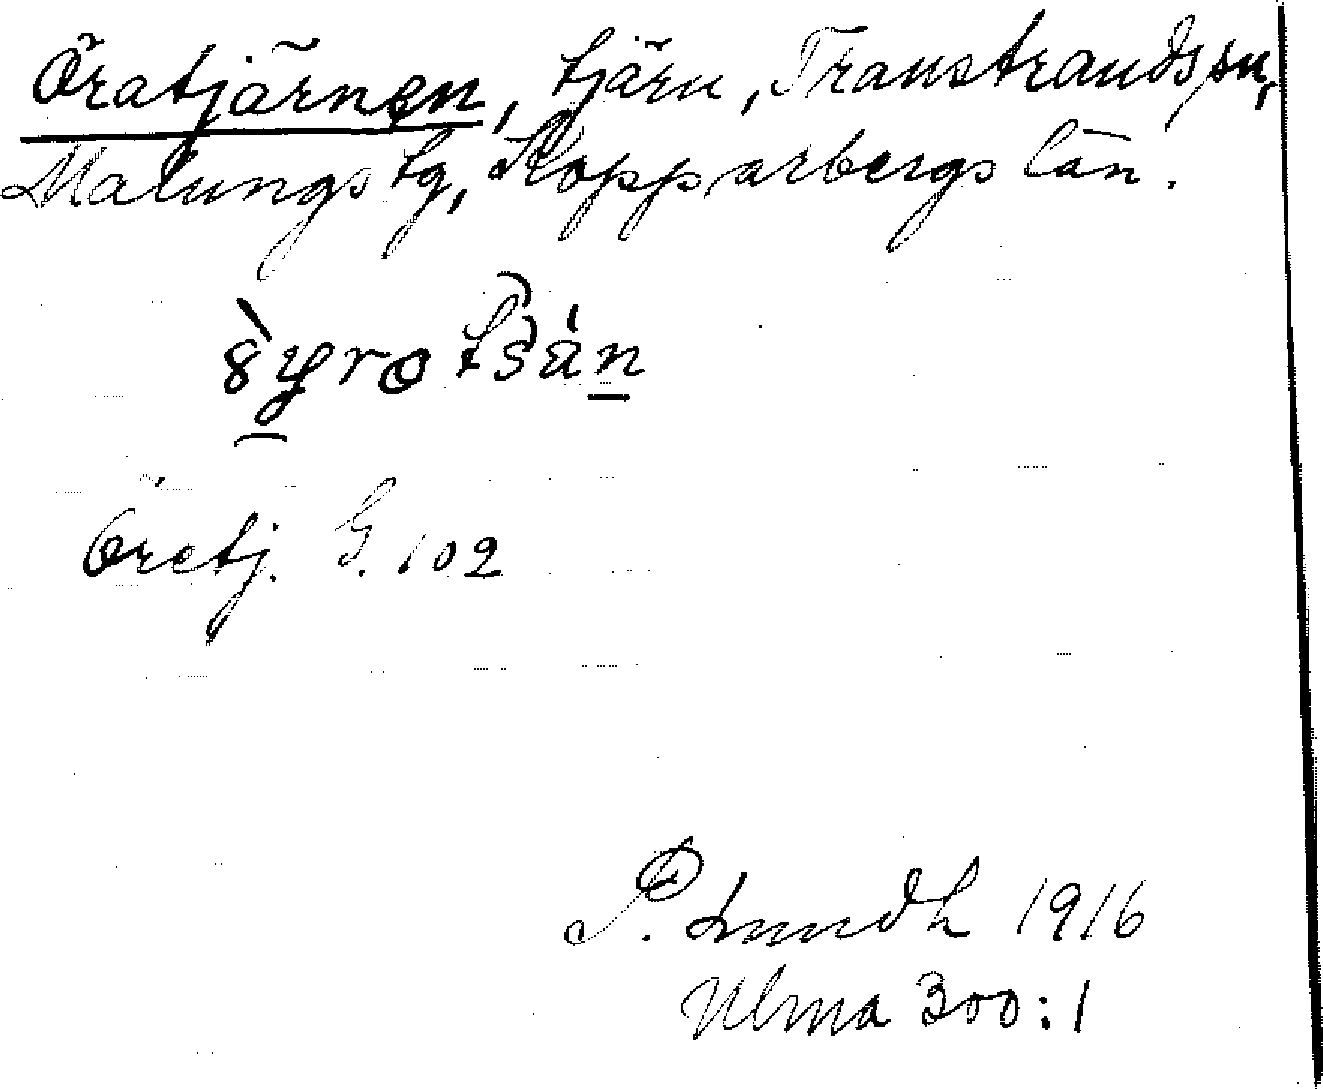 Öratjärnen, tjärn, Transtrands sn,
Malungs tg, Kopparbergs län.
Öretj. G. 102
P. Lundh 1916
Ulma 300:1